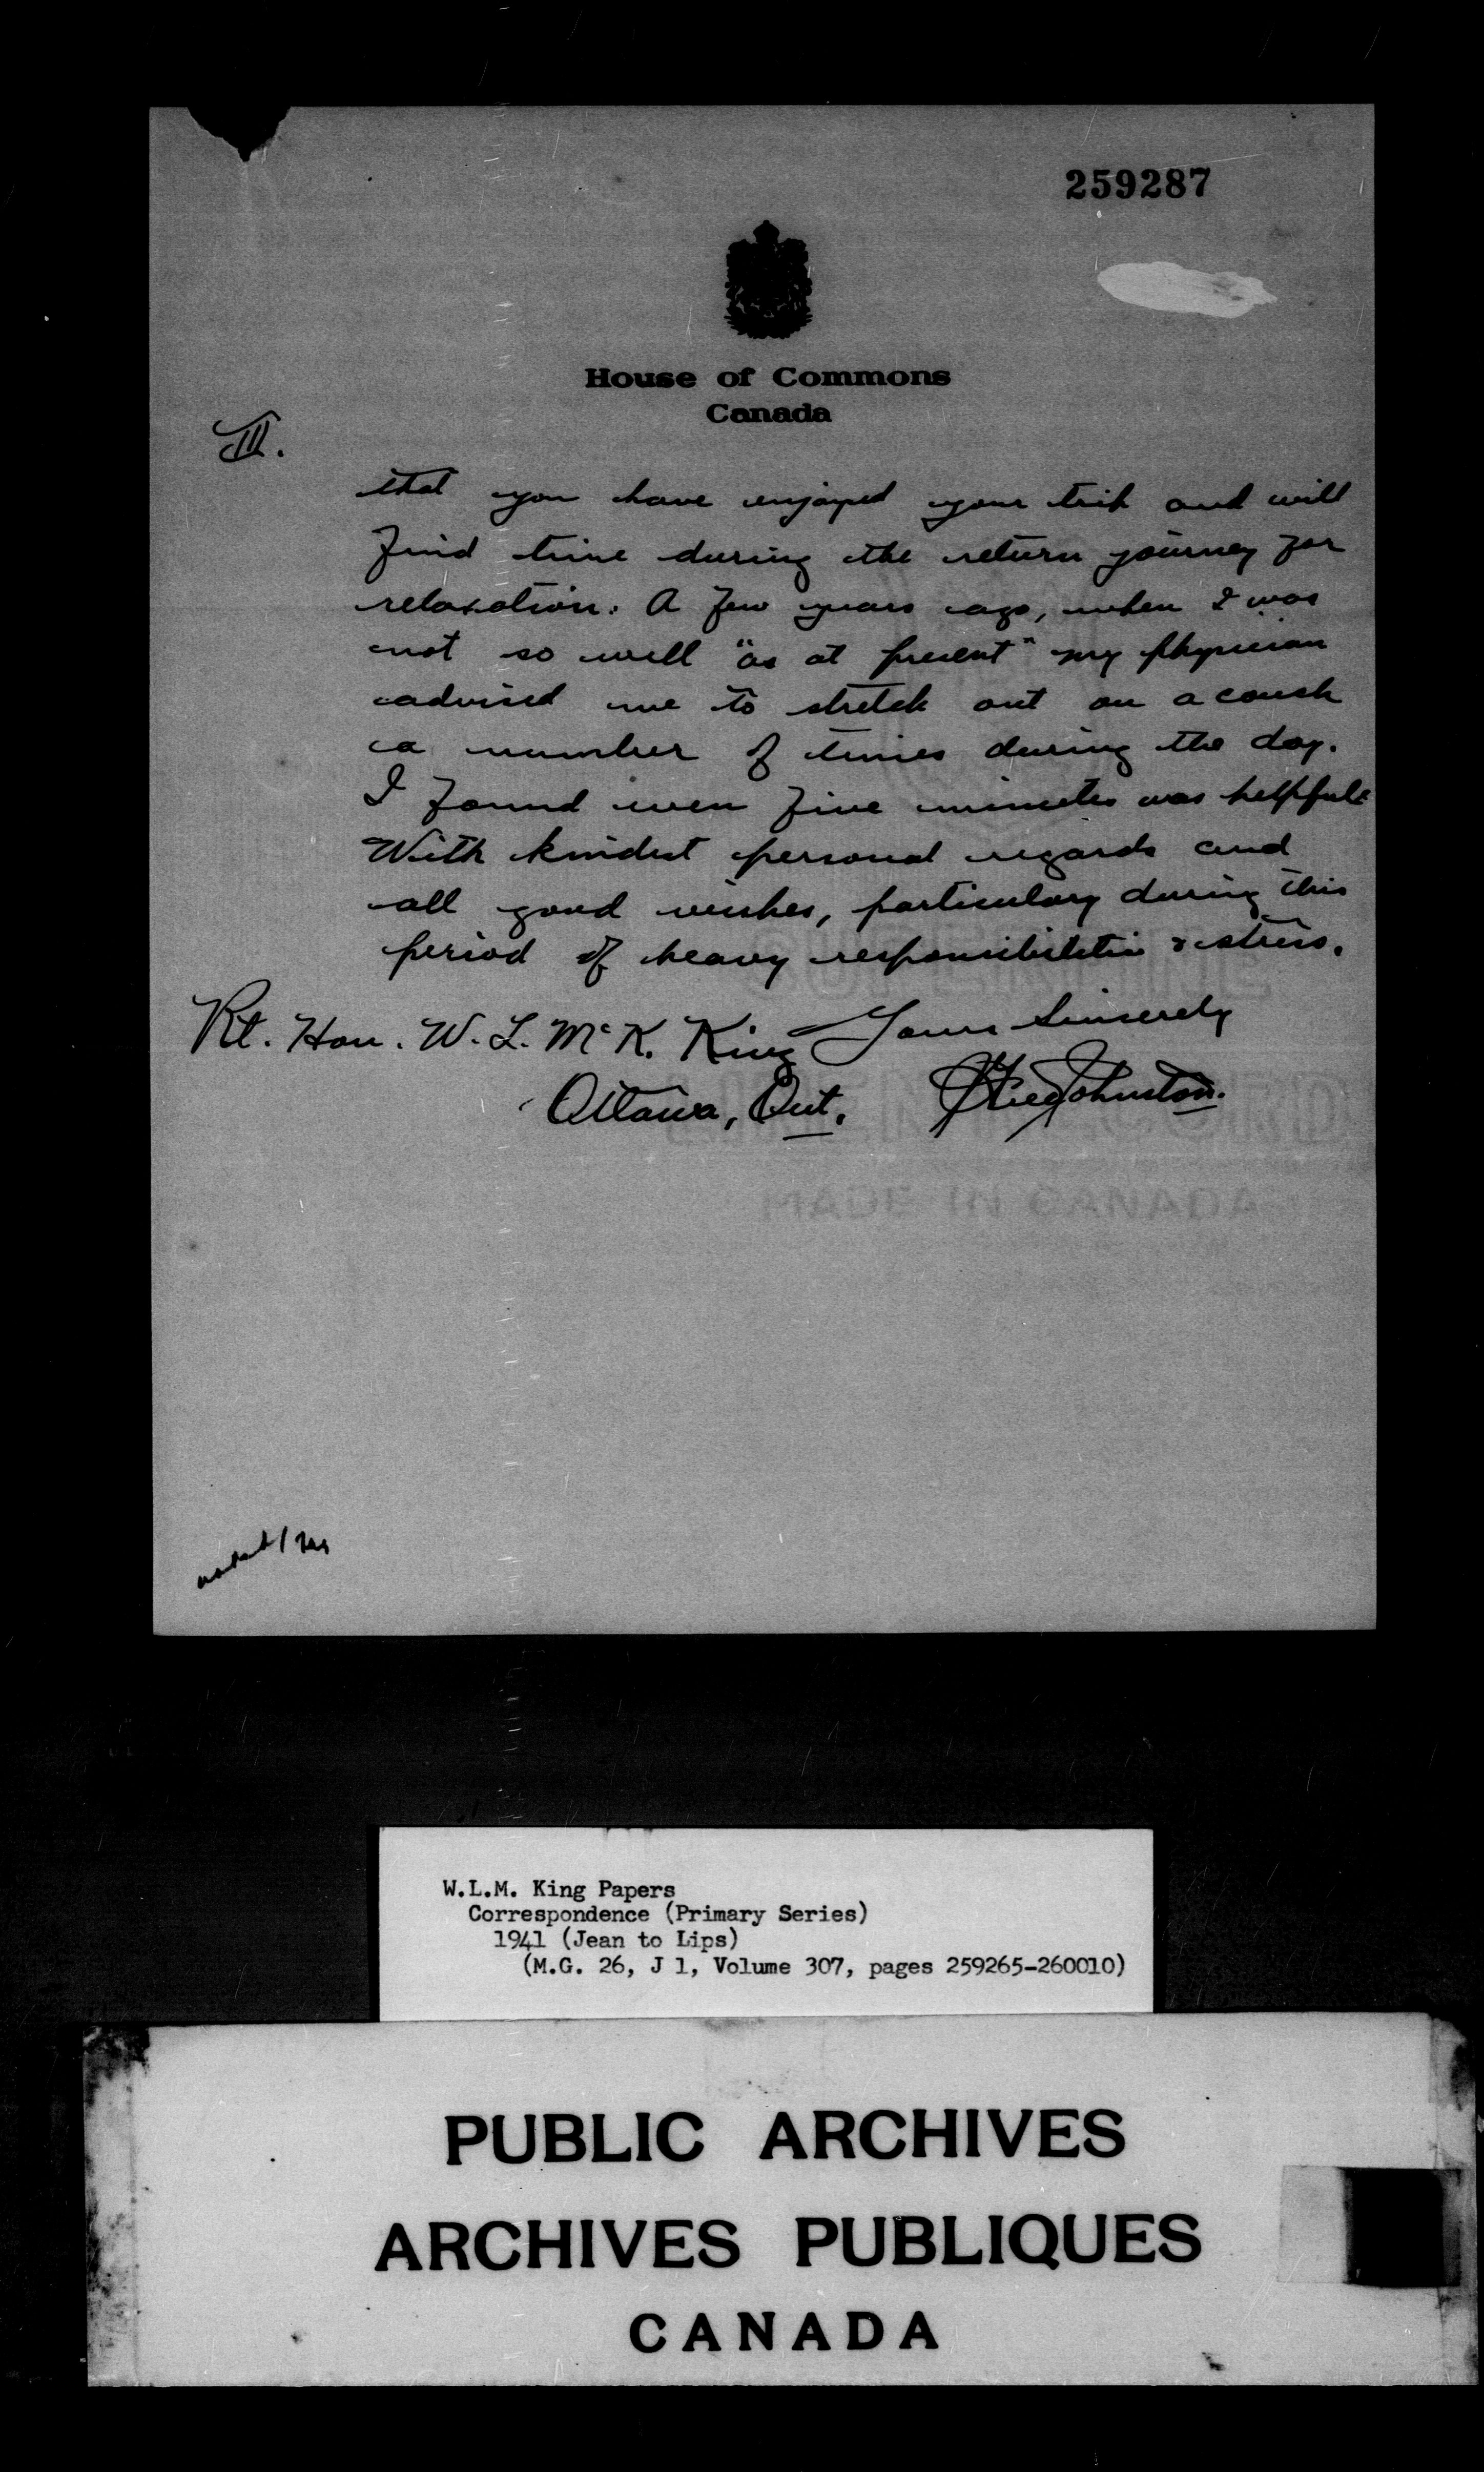 259287
House of Commons
Canada
III.
that you have enjoyed your trip and will
find time during the return journey for
relaxation. A few years ago, when I was
not so well "as at present" my physician
advised me to stretch out on a couch
a number of times during the day.
I found even five minutes was helpful.
With kindest personal regards and
all good wishes, particulary during this
period of heavy responsibilitie & stress.
Rt. Hon. W. L. McK. King Yours Sincerely
Ottawa, Ont. Johnston.
SUPERFINE
LINEN RECORD
MADE IN CANADA
W.L.M. King Papers
Correspondence (Primary Series)
1941 (Jean to Lips)
(M.G. 26, J 1, Volume 307, pages 259265-260010)
PUBLIC ARCHIVES
ARCHIVES PUBLIQUES
CANADA